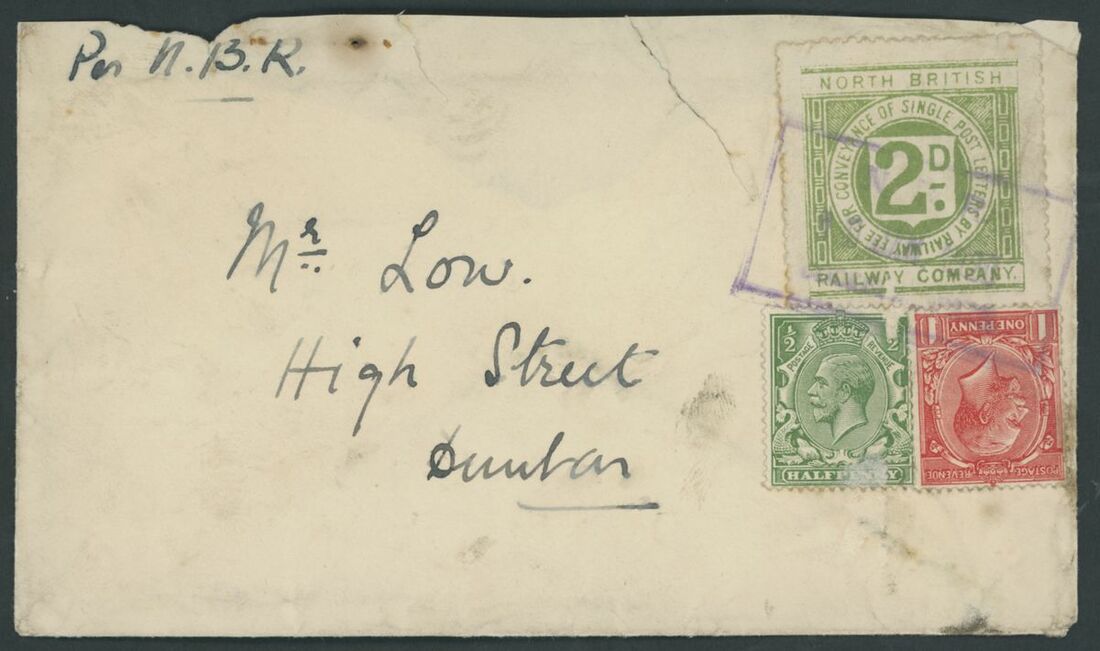 Per N.B.R.
NORTH BRITISH
CONVEYANCE OF SINGLE POST LETTERS BY RAILWAY FEE FOR
2D
RAILWAY COMPANY.
Mr Low.
High Street
Dunbar
½ ½
POSTAGE REVENUE
HALFPENNY
1 ONE PENNY 1
POSTAGE REVENUE